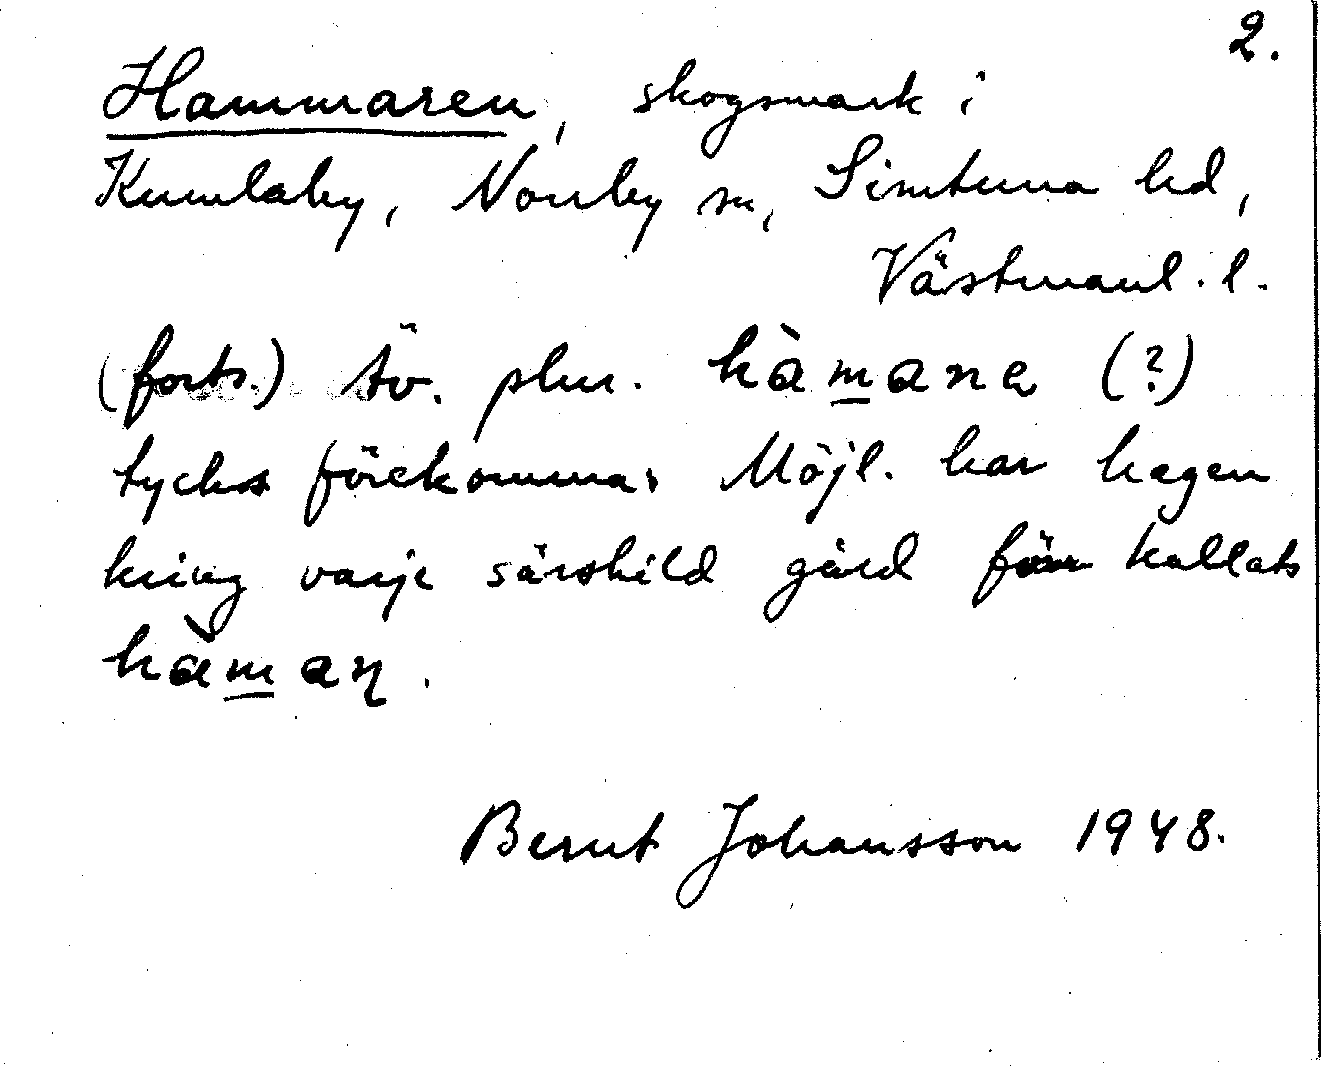 2.
Hammaren, skogsmark i
Kumlaby, Norrby sn, Simtuna hd,
Västmanl. l.
(forts.) Äv. plur. hàmana (?)
tycks förekomma. Möjl. har hagen
kring varje särskild gård förr kallats
hàmaɳ.
Bernt Johansson 1948.